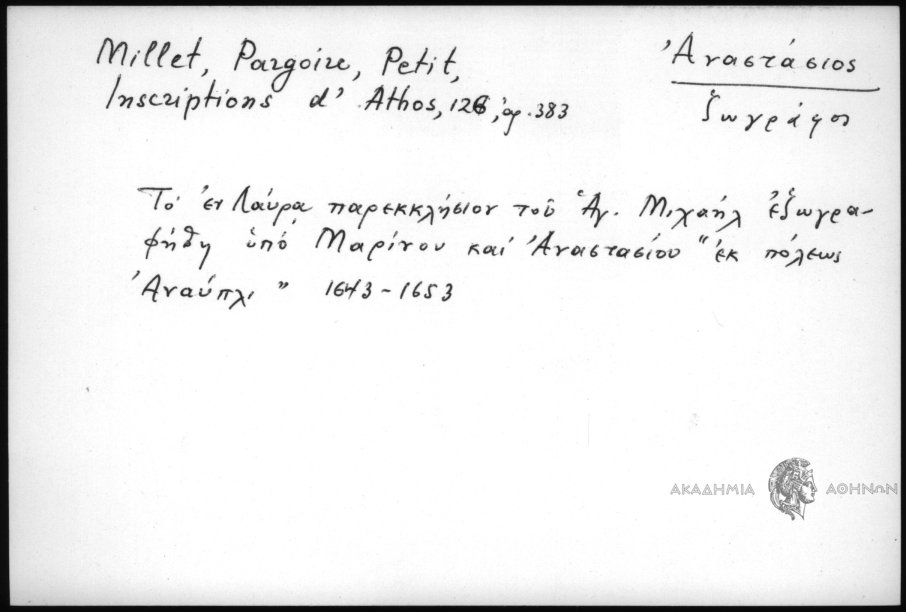 Millet, Pargoire, Petit,
Inscriptions d' Athos, 126, ἀρ. 383
Ἀναστάσιος
ζωγράφος
Τό ἐν Λαύρᾳ παρεκκλήσιον τοῦ Ἁγ. Μιχαήλ ἐζωγρα-
φήθη ὑπό Μαρίνου καί Ἀναστασίου "ἐκ πόλεως
Ἀναύπλι" 1643-1653
ΑΚΑΔΗΜΙΑ ΑΘΗΝΩΝ